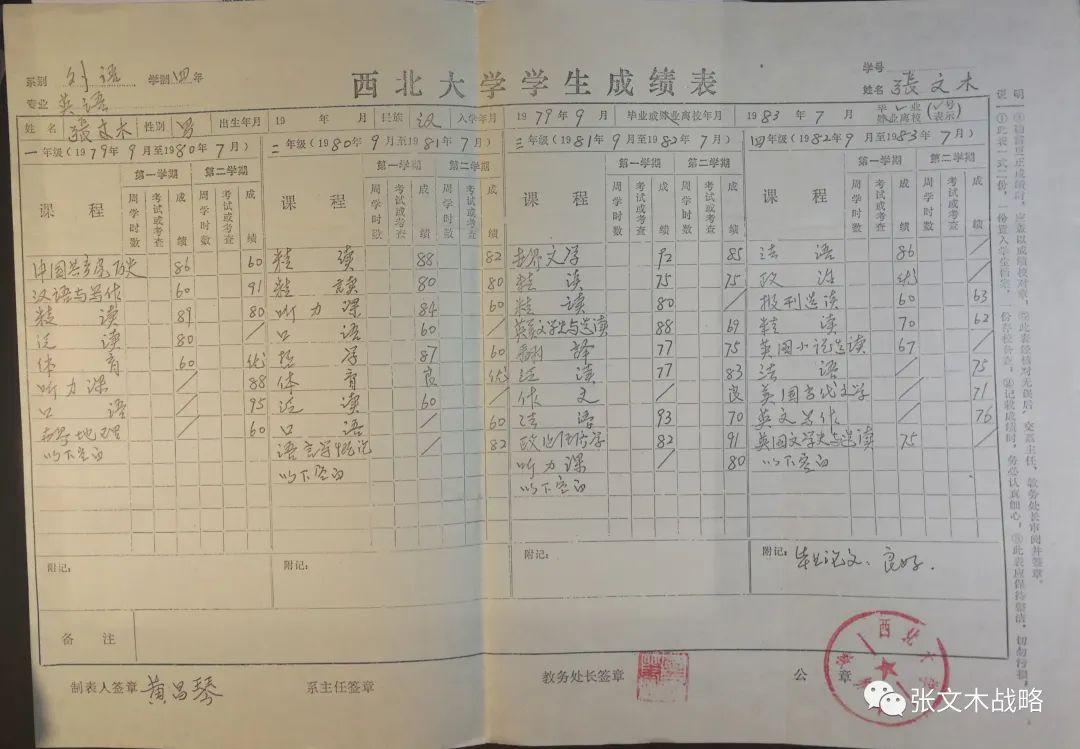 西北大学学生成绩表
系别 外语 学制 四年
学号
专业 英语
姓名 張文木
姓名 張文木 性别 男 出生年月 19 年 月 民族 汉 入学年月 1979年9月 毕业或肄业离校年月 1983年7月 毕业 肄业离校 (√号表示)
一年级(1979年9月至1980年7月)
第一学期 第二学期
课程 周学时数 考试或考查 成绩 周学时数 考试或考查 成绩
中国共产党历史 86 60
汉语与写作 60 91
精读 89 80
泛读 80 /
体育 60 优
听力课 / 88
口语 / 95
世界地理 / 60
以下空白
附记:
二年级(1980年9月至1981年7月)
第一学期 第二学期
课程 周学时数 考试或考查 成绩 周学时数 考试或考查 成绩
精读 88 82
精读 80 80
听力课 84 60
口语 60 /
哲学 87 60
体育 良 优
泛读 60 /
口语 / 60
语言学概论 / 82
以下空白
附记:
三年级(1981年9月至1982年7月)
第一学期 第二学期
课程 周学时数 考试或考查 成绩 周学时数 考试或考查 成绩
世界文学 92 85
精读 75 75
精读 80 /
英美文学史与选读 88 69
翻译 77 75
泛读 77 83
作文 / 良
法语 93 70
政治经济学 82 91
听力课 / 80
以下空白
附记:
四年级(1982年9月至1983年7月)
第一学期 第二学期
课程 周学时数 考试或考查 成绩 周学时数 考试或考查 成绩
法语 86
政治 优
报刊选读 60 63
精读 70 62
英国小说选读 67 /
法语 75
美国当代文学 71
英文写作 76
英国文学史与选读 75 /
以下空白
附记: 毕业论文、良好.
备注
制表人签章 黄昌琴 系主任签章 教务处长签章 公章
说明
①此表一式二份,一份置入学生档案,一份存校备查,②记载成绩时,务必认真细心,③此表应保持整洁,切勿污损,
④如需更正成绩时,应盖以成绩校对章,⑤此表经核对无误后,交系主任、教务处长审阅并签章。
张文木战略